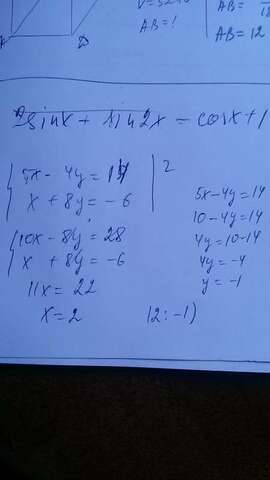 V=32
AB=!
AB=
AB=12
A
D
2sinx + sin2x = cosx+1
5x - 4y = 14 | 2
x + 8y = -6
10x - 8y = 28
x + 8y = -6
11x = 22
x = 2
5x-4y=14
10-4y=14
4y=10-14
4y=-4
y=-1
(2; -1)